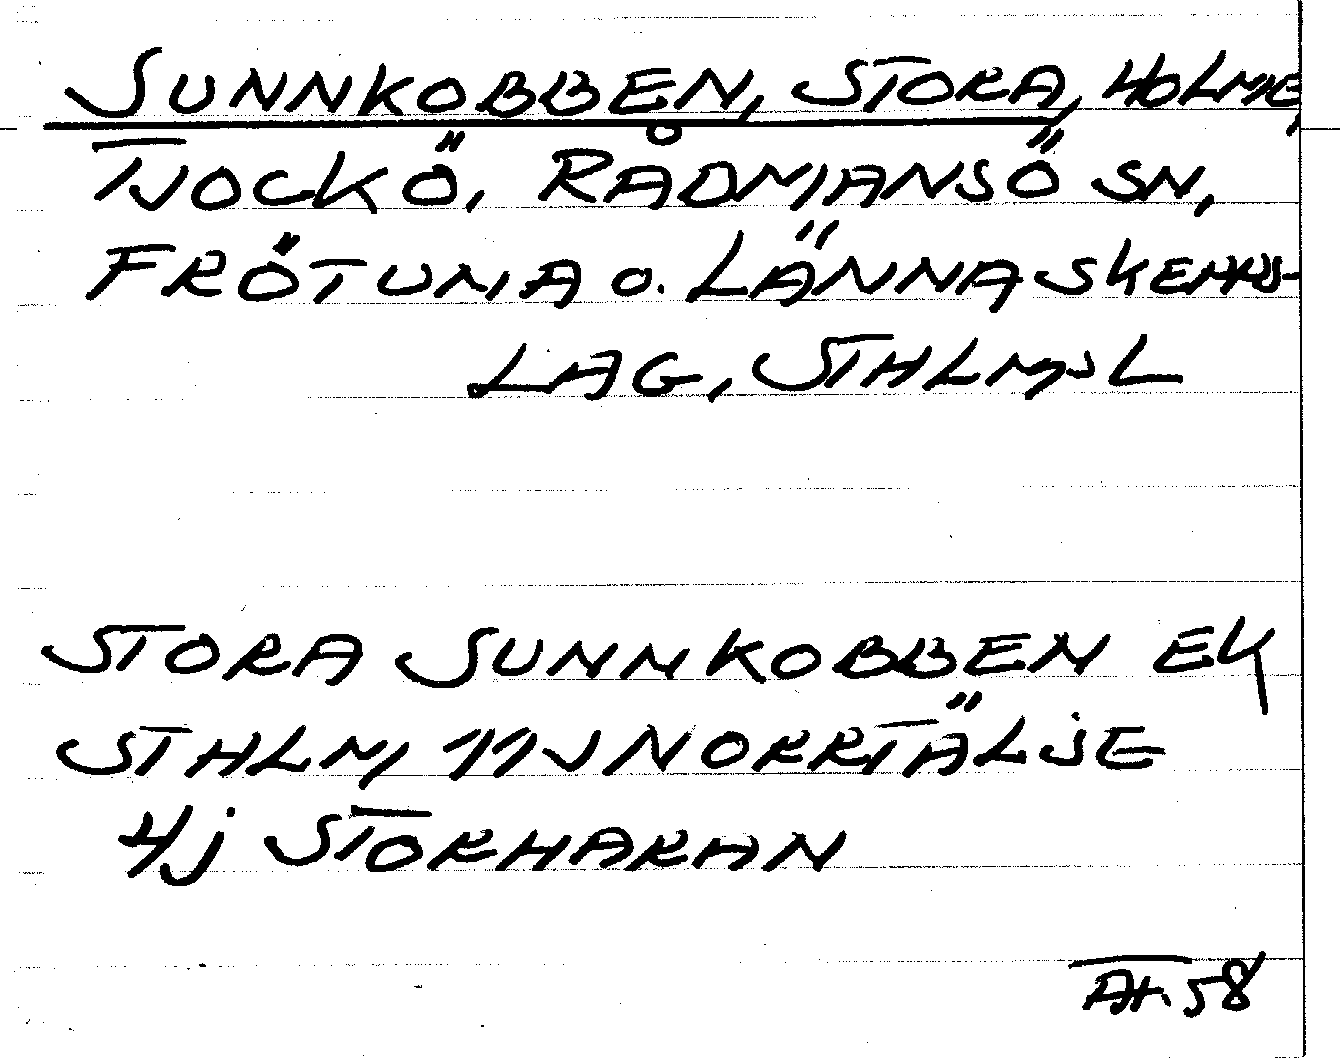 SUNNKOBBEN, STORA, HOLME,
TJOCKÖ, RÅDMANSÖ SN,
FRÖTUNA o. LÄNNA SKEPPS-
LAG, STHLMS L
STORA SUNNKOBBEN EK
STHLM 11J NORRTÄLJE
4j STORHARAN
AH. 58